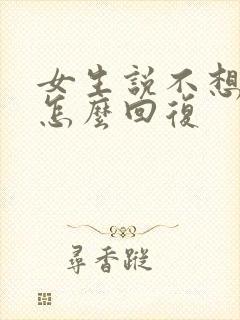 女生説不想
怎麽回復
尋香蹤